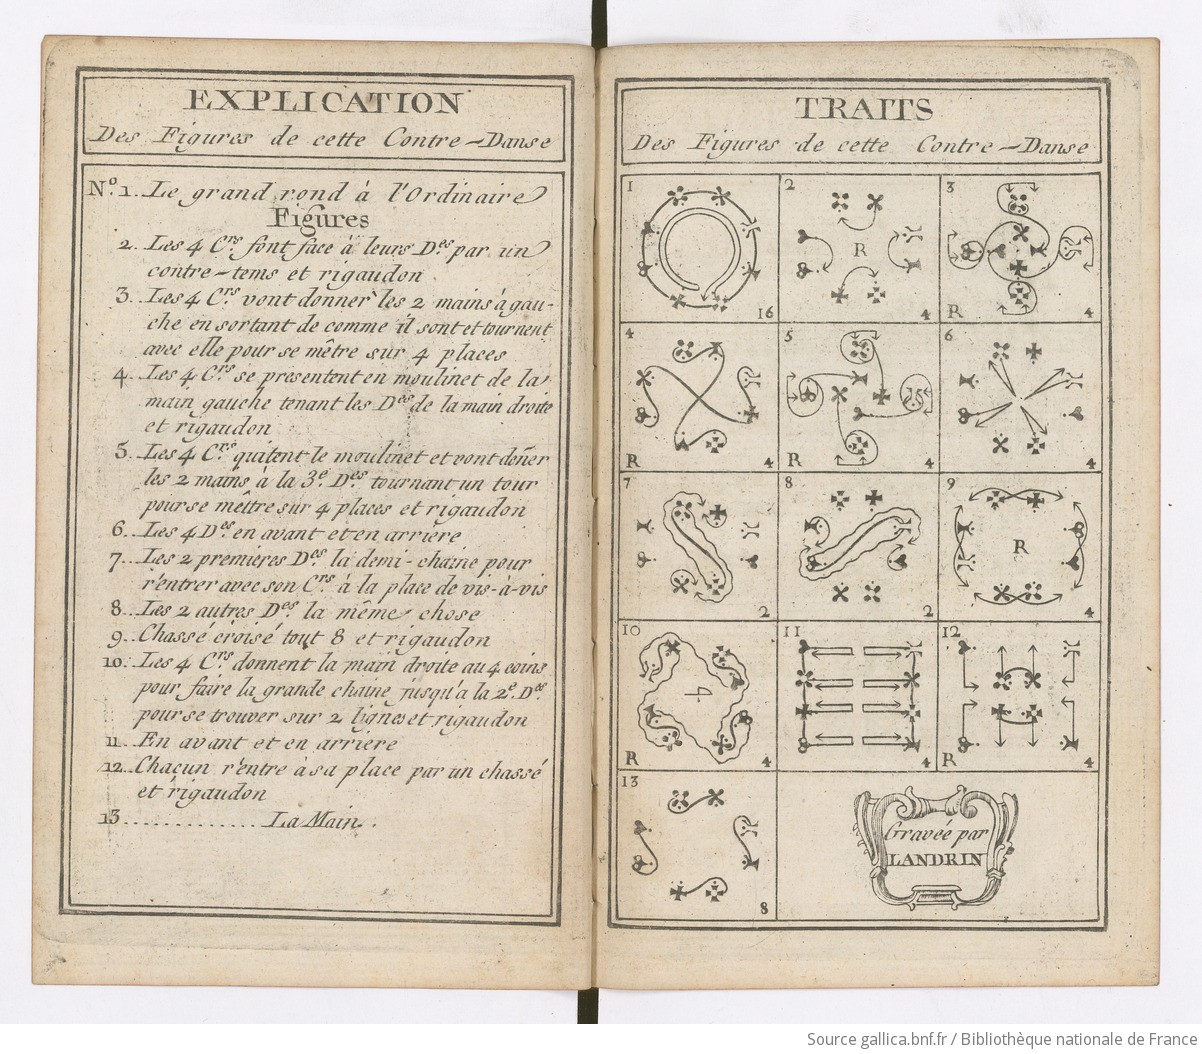 EXPLICATION
Des Figures de cette Contre-Danse
N.º 1. Le grand rond à l'Ordinaire
Figures
2. Les 4 C.rs font face à leurs D.es par un
contre-tems et rigaudon
3. Les 4 C.rs vont donner les 2 mains à gau-
che en sortant de comme il sont et tournent
avec elle pour se mêtre sur 4 places
4. Les 4 C.rs se presentent en moulinet de la
main gauche tenant les D.es de la main droite
et rigaudon
5. Les 4 C.rs quitent le moulinet et vont doñer
les 2 mains à la 3.e D.es tournant un tour
pour se mêttre sur 4 places et rigaudon
6. Les 4 D.es en avant et en arriere
7. Les 2 premieres D.es la demi-chaine pour
r'entrer avec son C.rs à la place de vis-à-vis
8. Les 2 autres D.es la même chose
9. Chassé croisé tout 8 et rigaudon
10. Les 4 C.rs donnent la main droite au 4 coins
pour faire la grande chaine jusqu'a la 2.e D.es
pour se trouver sur 2 lignes et rigaudon
11. En avant et en arriere
12. Chacun r'entre à sa place par un chassé
et rigaudon
13 ............. La Main.
TRAITS
Des Figures de cette Contre-Danse
1
16
2
R
4
3
R
4
4
R
4
5
R
4
6
4
7
2
8
2
9
R
4
10
4
R
4
11
4
12
R
4
13
8
Gravée par
LANDRIN
Source gallica.bnf.fr / Bibliothèque nationale de France